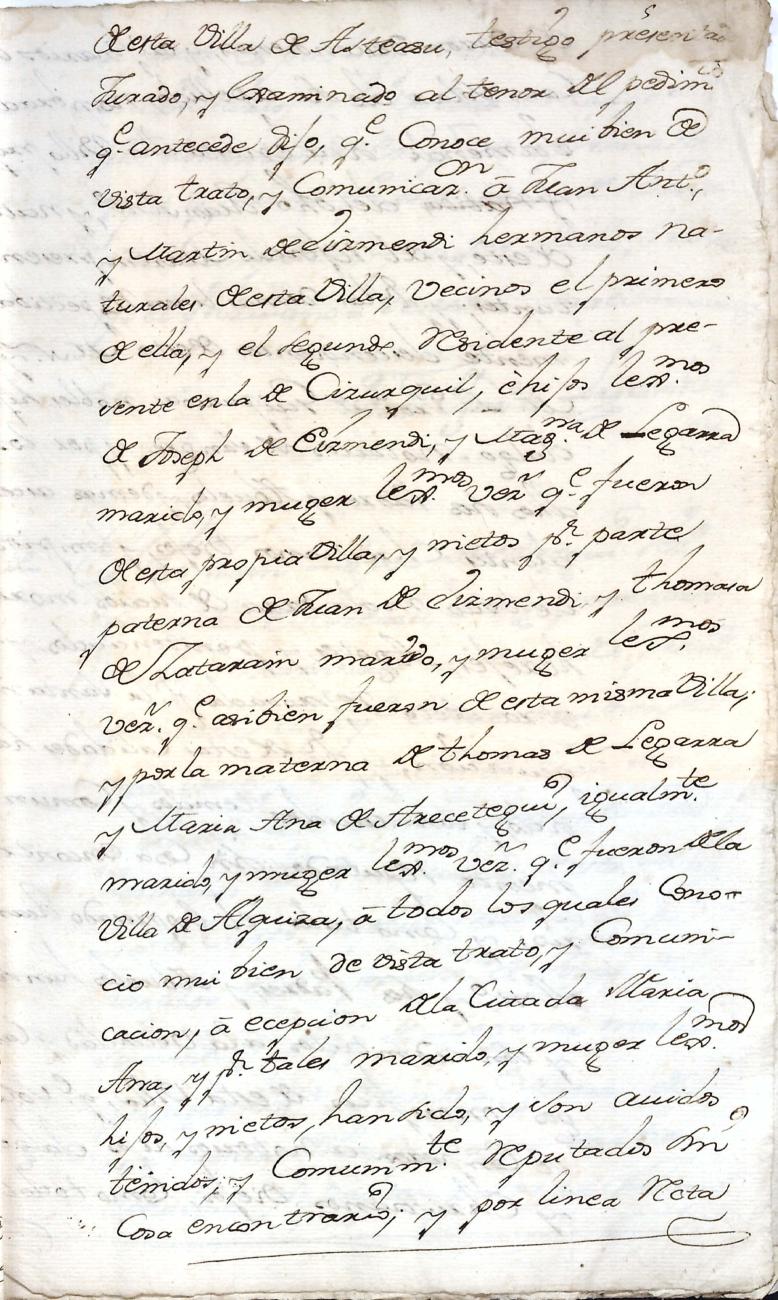 de esta Villa de Asteasu, testigo presentado
Jurado, y Examinado al tenor del pedim.to
q.e antecede dijo, q.e Conoce mui bien de
vista trato, y Comunicaz.on â Juan Ant.o,
y Martin de Lizmendi hermanos na-
turales de esta Villa, Vecinos el primero
de ella, y el segundo Residente al pre-
sente en la de Cizurquil, è hijos lex.mos
de Joseph de Eizmendi, y Mag.na de Legarra
marido, y muger lex.mos vez.s q.e fueron
de esta propia Villa, y nietos p.r parte
paterna de Juan de Eizmendi, y thomasa
de Zatarain marido, y muger lex.mos
vez.s q.e asibien fueron de esta misma Villa,
y por la materna de thomas de Legarra
y Maria Ana de Arecetegui, igualm.te
marido, y muger lex.mos vez.s q.e fueron de la
Villa de Alquiza, â todos los quales Cono-
cio mui bien de vista trato, y Comuni-
cacion, â ecepcion de la Citada Maria
Ana, y p.r tales marido, y muger lex.mos
hijos, y nietos, han sido, y son auidos
tenidos, y Comunm.te Reputados sin
Cosa en contrario, y por linea Recta